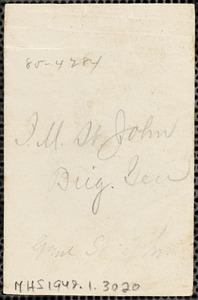 80-4284
I. M. St. John
Brig. Gen
Genl St John
MHS 1948.1.3020